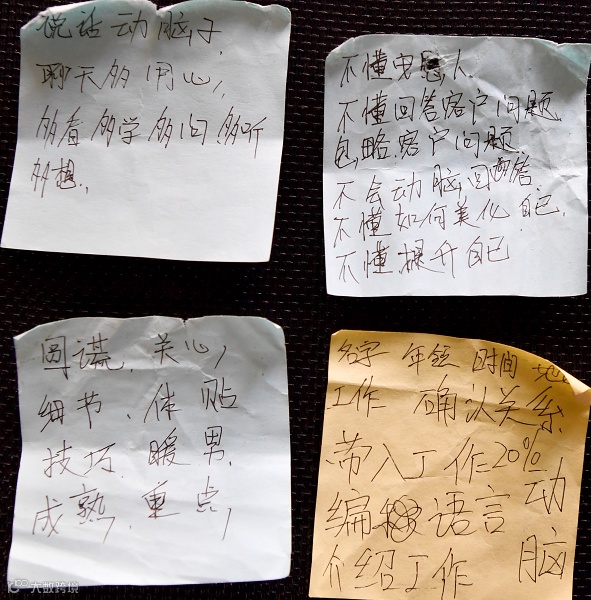 说话动脑子,
聊天多用心,
多看多学多问多听
多想.,
不懂电 人.
不懂回答客户问题
包略.客户问题.
不会动脑回答.
不懂如何美化自己.
不懂提升自己
圆谎.关心,
细节、体贴
技巧.暖男.
成熟,重点,
名字 年纪 时间 地
工作 确认关系
带入工作20%
编 语言 动
介绍工作 脑
大数跨境